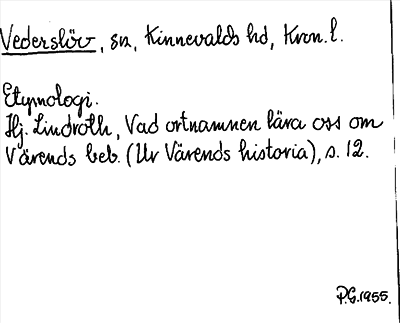 Vederslöv, sn, Kinnevalds hd, Kron. l.
Etymologi.
Hj. Lindroth, Vad ortnamnen lära oss om
Värends beb. (Ur Värends historia), s. 12.
P.G. 1955.